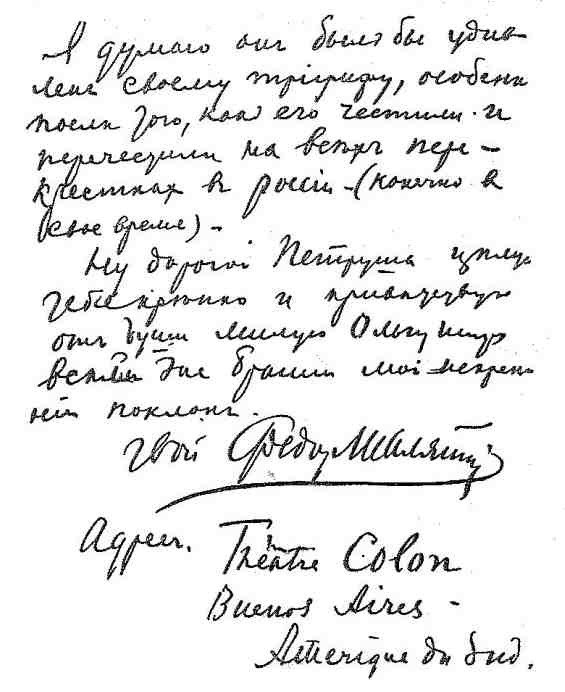 Я думаю онъ былъ бы удив-
ленъ своему тріумфу, особенн
послѣ того, какъ его честили и
перечестили на всѣхъ пере-
кресткахъ въ россіи - (конечно в
свое время) -
Ну дорогой Петруша цѣлую
тебя крѣпко и привѣтствую
отъ души милую Ольгу
всѣмъ братіи мой искрен
ній поклонъ.
твой Федоръ Шаляпинъ
Адресъ. Théâtre Colon
Buenos Aires -
Amerique du Sud.